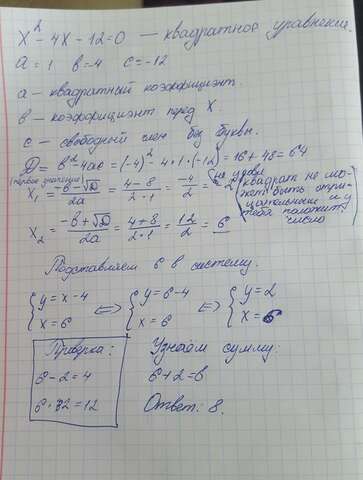 x² - 4x - 12 = 0 — квадратное уравнение.
a = 1 в = -4 c = -12
a - квадратный коэффициент.
в - коэффициент перед x.
c - свободный член без буквы.
D = в² - 4ac = (-4)² - 4·1·(-12) = 16 + 48 = 64
(первое значение)
x₁ = (-в - √D)/2a = (4 - 8)/(2·1) = -4/2 = -2
квадрат не мо-
жет быть отри-
цательным и у
тебя положит.
число
x₂ = (-в + √D)/2a = (4 + 8)/(2·1) = 12/2 = 6
Подставляем 6 в систему.
{ y = x - 4 <=> { y = 6 - 4 <=> { y = 2
{ x = 6 { x = 6 { x = 6
Проверка:
6 - 2 = 4
6 · 2 = 12
Узнаём сумму:
6 + 2 = 8
Ответ: 8.